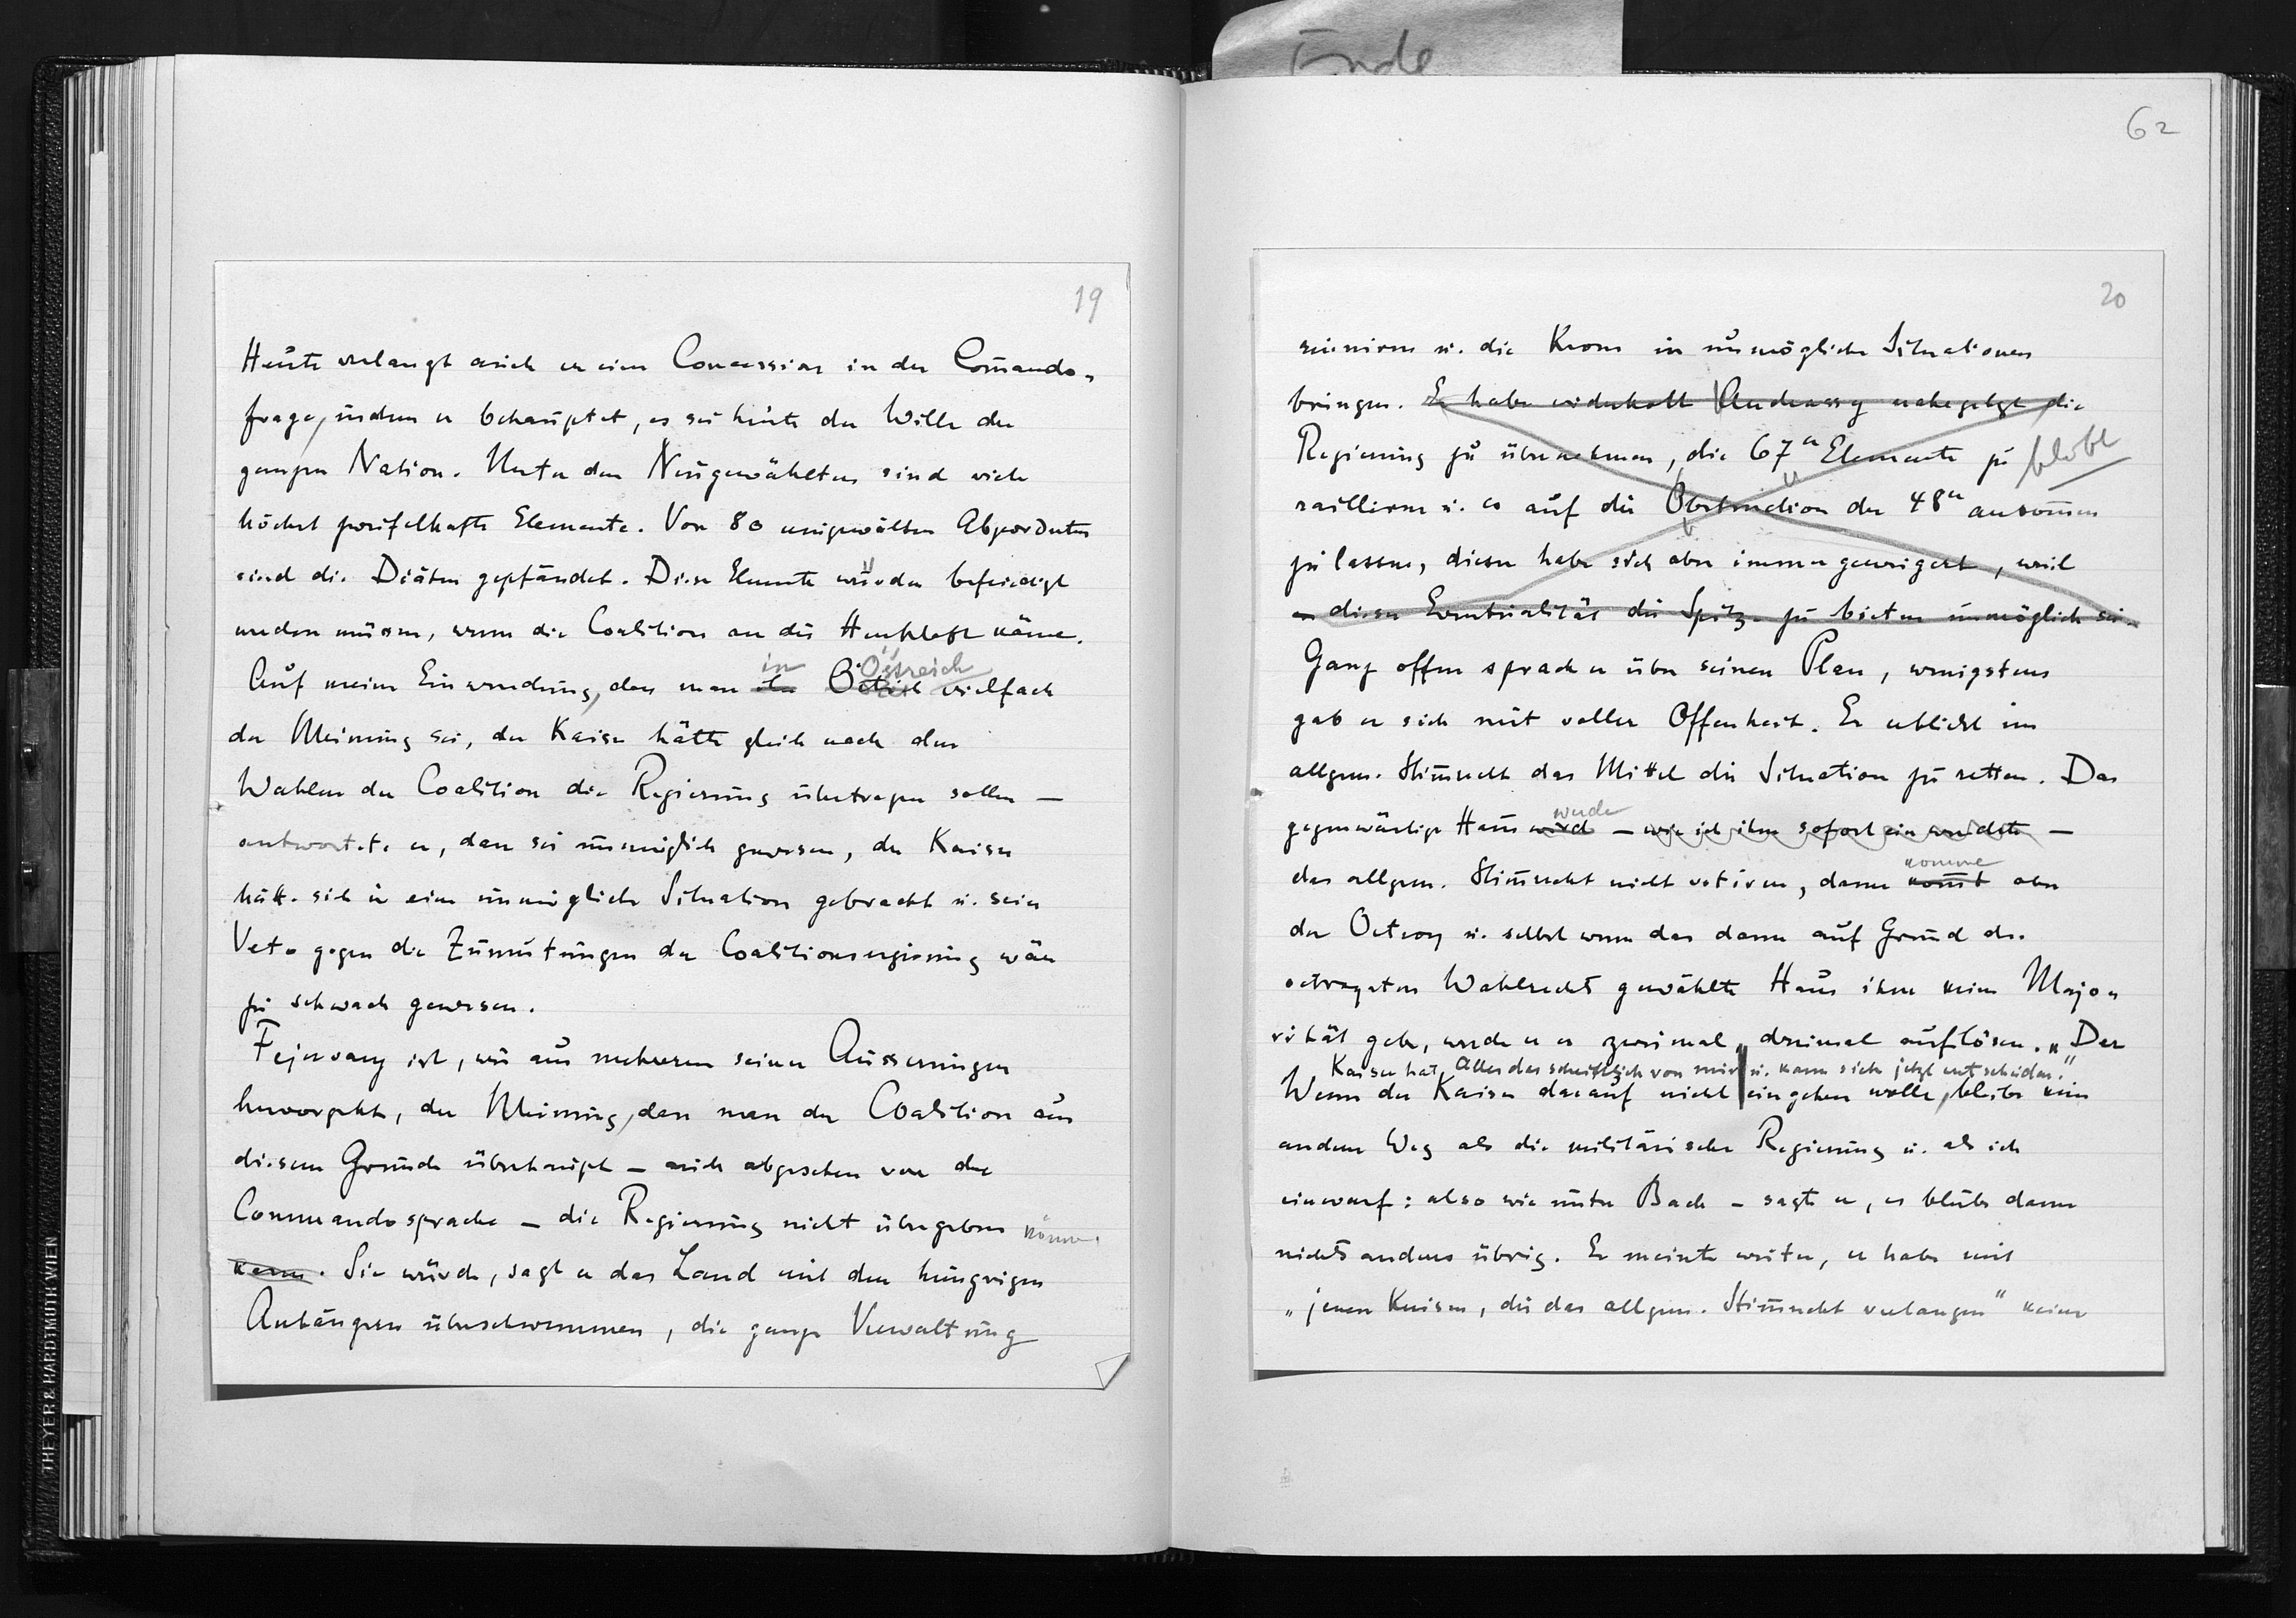 19
Heute verlangt auch er eine Concession in der Com̄ando-
frage, indem er behauptet, es sei heute der Wille der
ganzen Nation. Unter den Neugewählten sind viele
höchst zweifelhafte Elemente. Von 80 neugewälten Abgeordneten
sind die Diäten gepfändet. Diese Elemente würden befriedigt
werden müssen, wenn die Coalition an die Herrschaft käme.
in Östreich
Auf meine Einwendung, dass man vielfach
der Meinung sei, der Kaiser hätte gleich nach den
Wahlen der Coalition die Regierung übertragen sollen –
antwortete er, dass sei unmöglich gewesen, der Kaiser
hätte sich in eine unmögliche Situation gebracht u. sein
Veto gegen die Zumutungen der Coalitionsregierung wäre
zu schwach gewesen.
Fejervary ist, wie aus mehreren seiner Äusserungen
hervorgeht, der Meinung, dass man der Coalition aus
diesem Grunde überhaupt – auch abgesehen von der
Commandosprache – die Regierung nicht übergeben könne.
kann. Sie würde, sagt er das Land mit den hungrigen
Anhängern überschwemmen, die ganze Verwaltung
Ende
62
20
ruiniren u. die Krone in unmögliche Situationen
bringen. Er habe widerholt Andrassy nahegelegt die
Regierung zu übernehmen, die 67er Elemente zu bleibt
raillieren u. es auf die Obstruction der 48er ankom̄en
zu lassen, dieser habe sich aber immer geweigert, weil
– dieser Eventualität die Spitze zu bieten unmöglich sei.
Ganz offen sprach er über seinen Plan, wenigstens
gab er sich mit voller Offenheit. Er erblickt im
allgem. Stim̄recht das Mittel die Situation zu retten. Das
werde
gegenwärtige Haus wird – wie ich ihm sofort einwendete –
komme
das allgem. Stim̄recht nicht votiren, dann kom̄t aber
der Octroy u. selbst wenn das dann auf Grund des
octroyirten Wahlrechts gewählte Haus ihm keine Majo-
rität gebe, werde er es zweimal, dreimal auflösen. „Der
Kaiser hat Alles das schriftlich von mir u. kann sich jetzt entscheiden."
Wenn der Kaiser darauf nicht eingehen wolle, bleibe kein
anderer Weg als die militärische Regierung u. als ich
einwarf: also wie unter Bach – sagte er, es bliebe dann
nichts anderes übrig. Er meinte weiter, er habe mit
„jenen Kreisen, die das allgem. Stim̄recht verlangen" keine
THEYER & HARDTMUTH WIEN